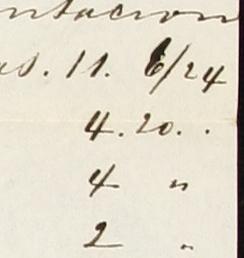 ntacion
as. 11. 6/24
4.20..
4 "
2 "